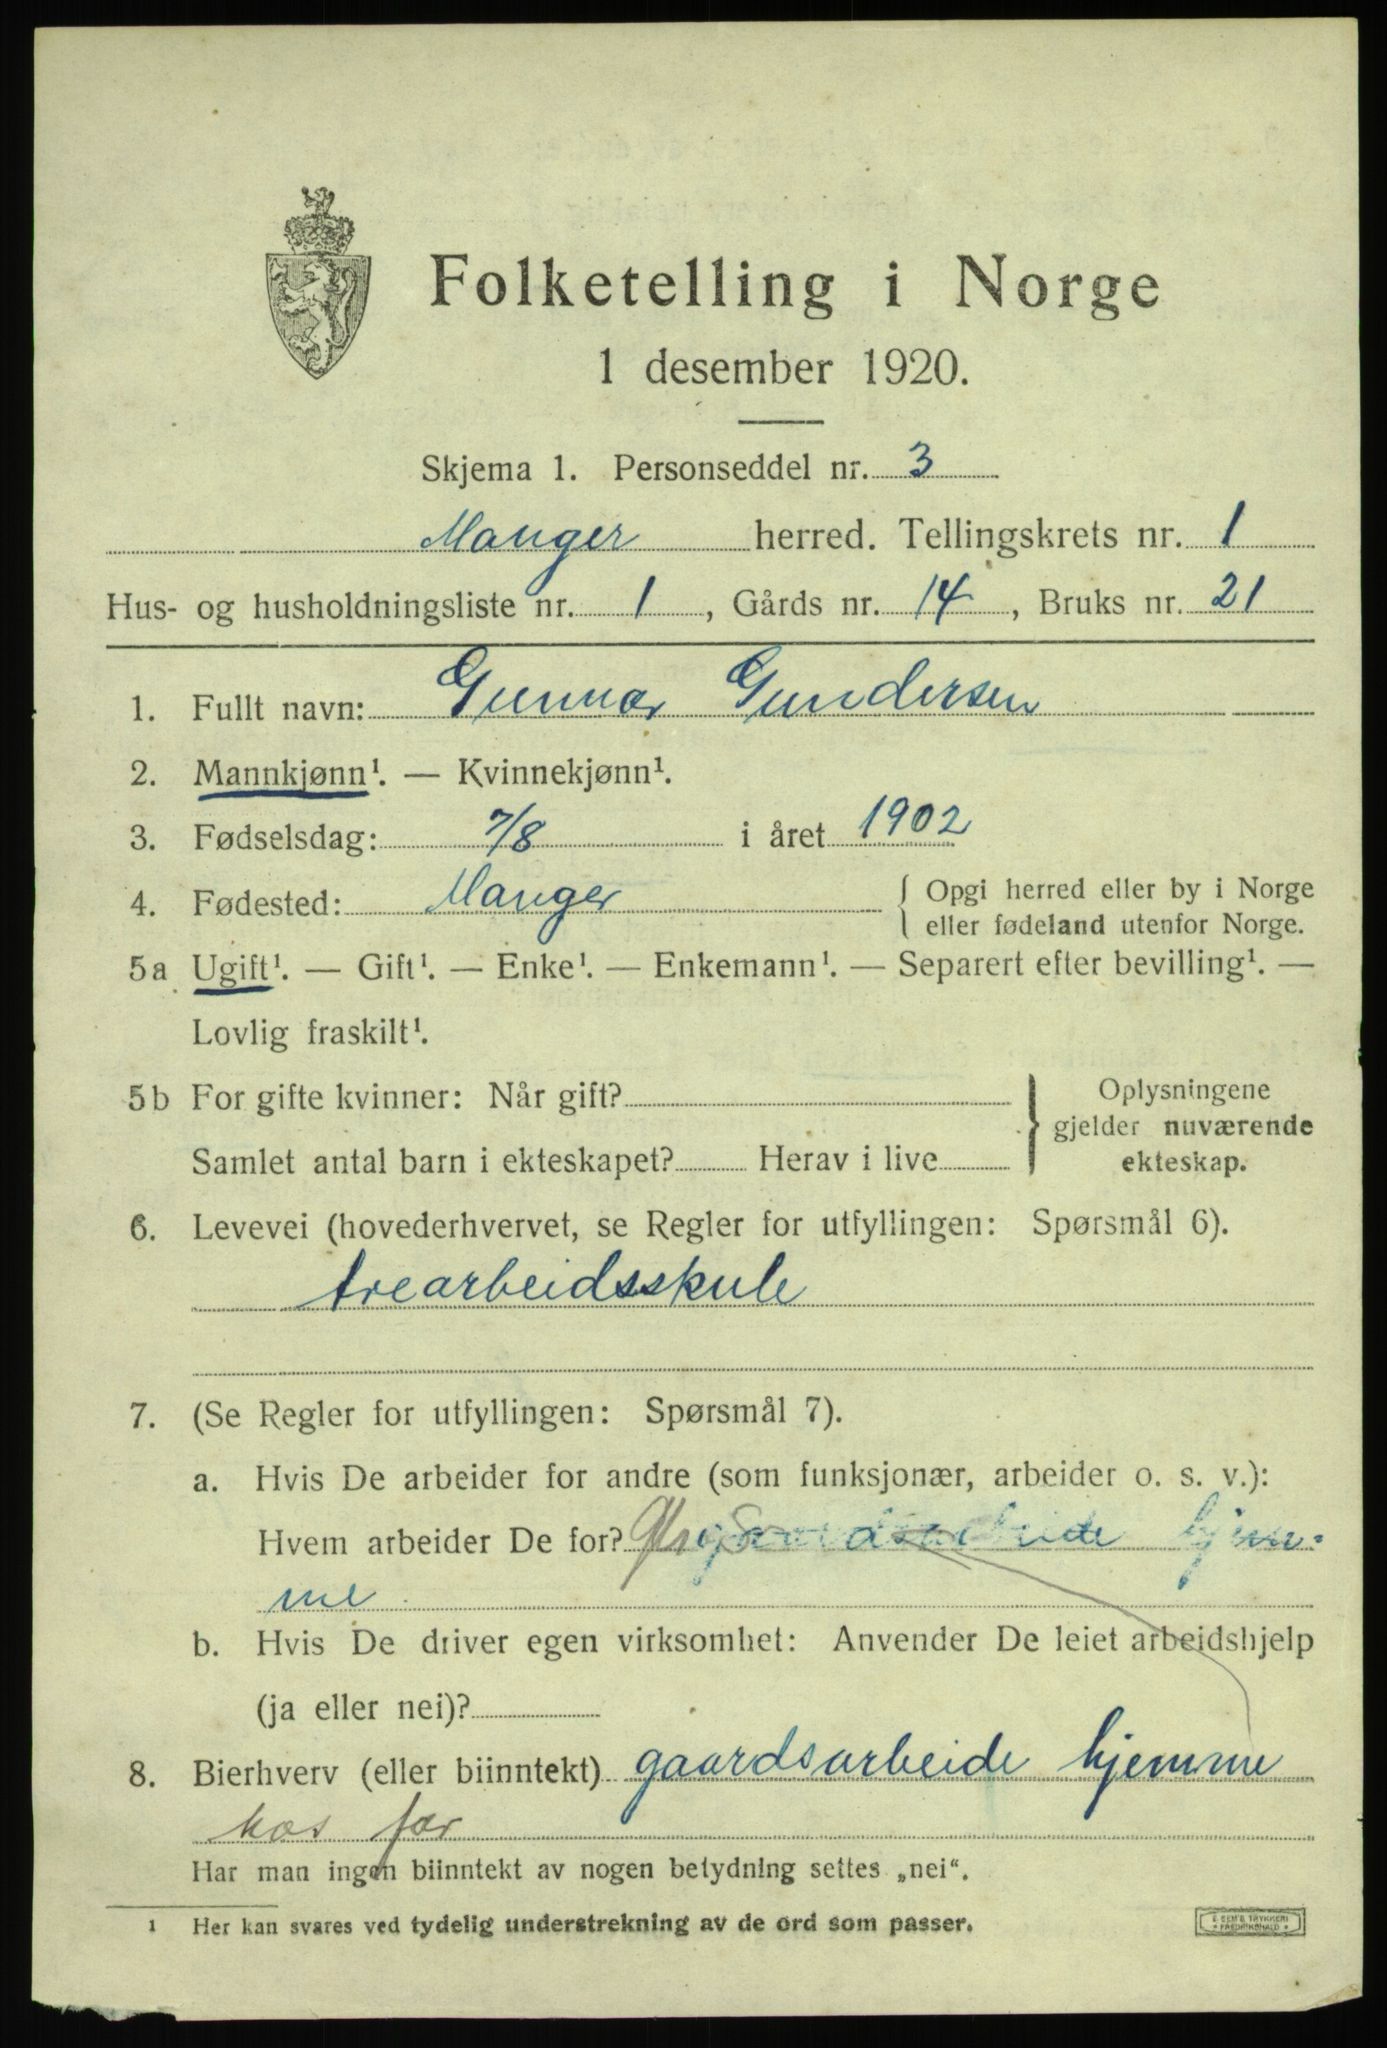 Folketelling i Norge
1 desember 1920.
Skjema 1. Personseddel nr. 3
Manger herred. Tellingskrets nr. 1
Hus- og husholdningsliste nr. 1, Gårds nr. 14, Bruks nr. 21
1. Fullt navn: Gunnar Gundersen
2. Mannkjønn¹. — Kvinnekjønn¹.
3. Fødselsdag: 7/8 i året 1902
4. Fødested: Manger { Opgi herred eller by i Norge
eller fødeland utenfor Norge.
5a Ugift¹. — Gift¹. — Enke¹. — Enkemann¹. — Separert efter bevilling¹. —
Lovlig fraskilt¹.
5b For gifte kvinner: Når gift? } Oplysningene
gjelder nuværende
Samlet antal barn i ekteskapet? Herav i live
ekteskap.
6. Levevei (hovederhvervet, se Regler for utfyllingen: Spørsmål 6).
trearbeidsskule
7. (Se Regler for utfyllingen: Spørsmål 7).
a. Hvis De arbeider for andre (som funksjonær, arbeider o. s. v.):
Hvem arbeider De for? gaardsarbeide hjem-
me
b. Hvis De driver egen virksomhet: Anvender De leiet arbeidshjelp
(ja eller nei)?
8. Bierhverv (eller biinntekt) gaardsarbeide hjemme
hos far
Har man ingen biinntekt av nogen betydning settes „nei“.
1 Her kan svares ved tydelig understrekning av de ord som passer.